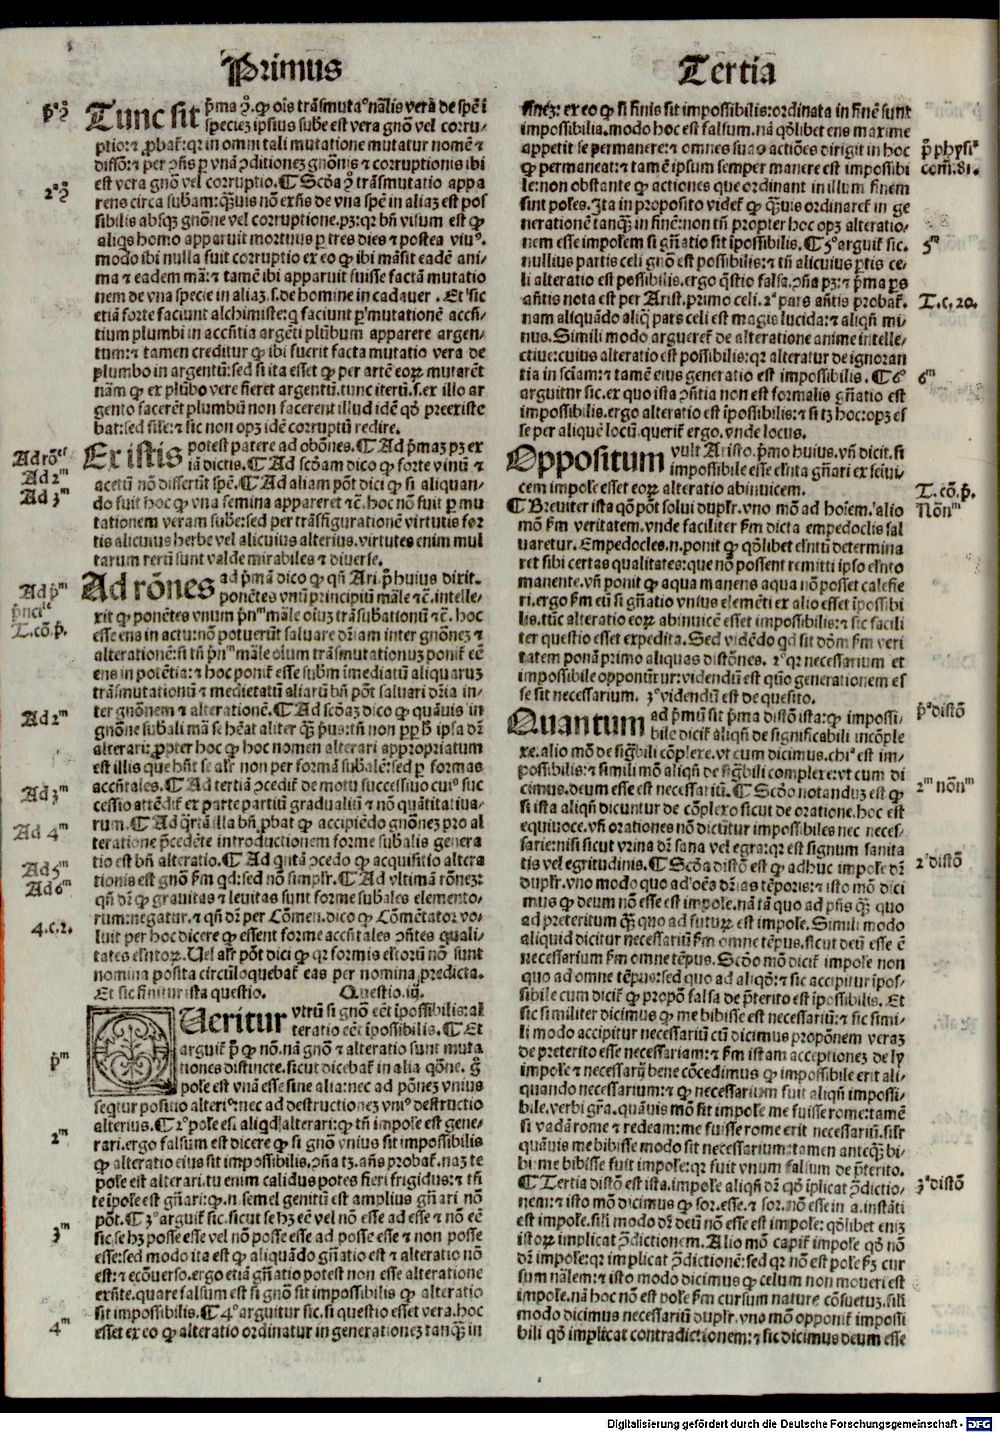 Primus
Tunc sit p̄ma ↄ̄. ꝙ oīs trāsmutaᵒ nālis vera de spē ī
speciez ipsius sube est vera gnō vel corru/
ptio: ⁊ ꝓbat᷑: qꝛ in omni tali mutatione mutatur nomē ⁊
diffō: ⁊ per ↄñs ꝑ vnā ↄditionez gnōnis ⁊ corruptionis ibi
est vera gnō vel corruptio. ¶ Scḋa ↄ̄ trāsmutatio appa
rens circa subam: qᷓuis nō exñs de vna spē in aliaz est pos
sibilis absqꝫ gnōne vel corruptione. pꝫ: qꝛ bñ visum est ꝙ
aliqs homo apparuit mortuus ꝑ tres dies ⁊ postea viuᵒ.
modo ibi nulla fuit corruptio ex eo ꝙ ibi māsit eadē ani/
ma ⁊ eadem mā: ⁊ tamē ibi apparuit fuisse factā mutatio
nem de vna specie in aliaz. s. de homine in cadauer. Et sic
etiā forte faciunt alchimiste: q faciunt ꝑ mutationē accñ/
tium plumbi in accñtia argēti plūbum apparere argen/
tum: ⁊ tamen creditur ꝙ ibi fuerit facta mutatio vera de
plumbo in argentū: sed si ita esset ꝙ per artē eoꝝ mutarēt
nām ꝙ ex plūbo vere fieret argentū. tunc iterū. s. ex illo ar
gento facerēt plumbū non facerent illud idē qḋ preexiste
bat: sed sile: ⁊ sic non opꝫ idē corruptū redire.
Ex istis potest patere ad obōnes. ¶ Ad p̄maꝫ pꝫ ex
iā dictis. ¶ Ad scḋam dico ꝙ forte vinū ⁊
acetū nō differūt spē. ¶ Ad aliam pōt dici ꝙ si aliquan/
do fuit hoc ꝙ vna semina appareret ⁊c̄. hoc nō fuit ꝑ mu
tationem veram sube: sed per trāsfigurationē virtutis for
tis alicuius herbe vel alicuius alterius. virtutes enim mul
tarum rerū sunt valde mirabiles ⁊ diuerse.
Ad rōnes ad p̄mā dico ꝙ qñ Ari. p̄ huius dixit.
ponētes vnū principiū māle ⁊c̄. intelle/
xit ꝙ ponētes vnum p̄nᵐ māle oiuꝫ trāsubationū ⁊c̄. hoc
esse ens in actu: nō potuerūt saluare dr̄iam inter gnōnez ⁊
alterationē: si tñ p̄nᵐ māle oium trāsmutationuꝫ ponit᷑ eē
ens in potētia: ⁊ hoc ponit᷑ esse subm̄ īmediatū aliquaruꝫ
trāsmutationū ⁊ medietatū aliarū bñ pōt saluari dr̄ia in/
ter gnōnem ⁊ alterationē. ¶ Ad scḋaꝫ dico ꝙ quāuis in
gnōne subali mā se hēat aliter qᷓ p̄us: tñ non ꝓp̱ ipsa dr̄
alterari: ꝓpter hoc ꝙ hoc nomen alterari appropriatum
est illis que hñt se alr̄ non per formā subalē: sed ꝑ formas
accñtales. ¶ Ad tertiā ↄcedit᷑ de motu successiuo cuiᵒ suc
cessio attēdit᷑ ex parte partiū gradualiū ⁊ nō quātitatiua/
rum. ¶ Ad qͬrtā illa bñ ꝓbat ꝙ accipiēdo gnōneꝫ pro al
teratione p̄cedēte introductionem forme subalis genera
tio est bñ alteratio. ¶ Ad quītā ↄcedo ꝙ acquisitio altera
tionis est gnō ẜm qd: sed nō simplr̄. ¶ Ad vltimā rōneꝫ:
qñ dr̄ ꝙ grauitas ⁊ leuitas sunt forme subales elemento/
rum: negatur. ⁊ qñ dr̄ per Cōmen. dico ꝙ Cōmētator vo/
luit per hoc dicere ꝙ essent forme accñtales ↄñtes quali/
tates elntoꝝ. Uel alr̄ pōt dici ꝙ qꝛ formis elntoꝝ nō sunt
nomina posita circūloquebat᷑ eas per nomina predicta.
Et sic finitur ista questio. Questio. iij.
Ueritur vtrū si gnō eēt ipossibilis: al
teratio eēt ipossibilis. ¶ Et
arguit᷑ p̄ ꝙ nō. nā gnō ⁊ alteratio sunt muta
tiones distincte. sicut dicebat᷑ in alia qōne. g̊
pole est vnā esse sine alia: nec ad pōneꝫ vnius
seqtur positio alteriᵒ: nec ad destructionez vniᵒ destructio
alterius. ¶ 2ᵒ pole est aliqd alterari: ꝙ tñ impole est gene/
rari. ergo falsum est dicere ꝙ si gnō vnius sit impossibilis
ꝙ alteratio eius sit impossibilis. ↄña tꝫ. añs probat᷑. naꝫ te
pole est alterari. tu enim calidus potes fieri frigidus: ⁊ tñ
te īpole est gñari: qꝛ. n. semel genitū est amplius gñari nō
pōt. ¶ 3ᵒ arguit᷑ sic. sicut se hꝫ eē vel nō esse ad esse ⁊ nō eē
sic se hꝫ posse esse vel nō posse esse ad posse esse ⁊ non posse
esse: sed modo ita est ꝙ aliquādo gñatio est ⁊ alteratio nō
est: ⁊ ecōuerso. ergo etiā gñatio potest non esse alteratione
exñte. quare falsum est si gnō sit impossibilis ꝙ alteratio
sit impossibilis. ¶ 4ᵒ arguitur sic. si questio esset vera. hoc
esset ex eo ꝙ alteratio ordinatur in generationez tanqᷓ in
p̄ᵃ ↄ̄
2ᵃ ↄ̄
Ad rōēˢ
Ad 2ᵐ
Ad 3ᵐ
Ad p̄ᵐ
T. cō. p̄.
Ad 2ᵐ
Ad 3ᵐ
Ad 4ᵐ
Ad 5ᵐ
Ad 6ᵐ
4. c. 2.
p̄ᵐ
2ᵐ
3ᵐ
4ᵐ
Tertia
finez: ex eo ꝙ si finis sit impossibilis: ordinata in finē sunt
impossibilia. modo hoc est falsum. nā qḋlibet ens maxime
appetit se permanere: ⁊ omnes suas actiōes dirigit in hoc
ꝙ permaneat: ⁊ tamē ipsum semper manere est impossibi
le: non obstante ꝙ actiones que ordinant in illum finem
sint poles. Ita in proposito videt᷑ ꝙ qᷓuis ordinaret᷑ in ge
nerationē tanqᷓ in finē: non tñ propter hoc opꝫ alteratio/
nem esse impolem si gñatio sit īpossibilis. ¶ 5ᵒ arguit᷑ sic.
nullius partis celi gnō est possibilis: ⁊ tñ alicuius ꝑtis ce/
li alteratio est possibilis. ergo qͥstio falsa. ↄña pꝫ: ⁊ p̄ma ꝑs
añtis nota est per Arist. primo celi. 2ᵃ pars añtis probat᷑.
nam aliquādo aliq pars celi est magis lucida: ⁊ aliqñ mi/
nus. Simili modo argueret᷑ de alteratione anime intelle/
ctiue: cuius alteratio est possibilis: qꝛ alteratur de ignoran
tia in sciam: ⁊ tamē eius generatio est impossibilis. ¶ 6ᵒ
arguitur sic. ex quo ista ↄñtia non est formalis gñatio est
impossibilis. ergo alteratio est īpossibilis: ⁊ si tꝫ hoc: opꝫ es
se per aliquē locū. querit᷑ ergo. vnde locus.
Oppositum vult Aristo. p̄mo huius. vñ dicit. si
impossibile esse elnta gñari ex seiui/
cem impole esset eoꝝ alteratio abinuicem.
¶ Breuiter ista qō pōt solui duplr̄. vno mō ad hoīem. alio
mō ẜm veritatem. vnde faciliter ẜm dicta empedoclis sal
uaretur. Empedocles. n. ponit ꝙ qḋlibet elntū determina
ret sibi certas qualitates: que nō possent remitti ipso elnto
manente. vñ ponit ꝙ aqua manens aqua nō posset calefie
ri. ergo ẜm eū si gñatio vnius elemēti ex alio esset īpossibi
lis. tūc alteratio eoꝝ abinuicē esset impossibilis: ⁊ sic facili
ter questio esset expedita. Sed vidēdo qd sit dōm ẜm veri
tatem ponā primo aliquas distōnes. 2ᵒ qꝛ necessarium et
impossibile opponūtur: videndū est quō generationem es
se sit necessarium. 3ᵒ videndū est de quesito.
Quantum ad p̄mū sit p̄ma distō ista: ꝙ impossi/
bile dicit᷑ aliqñ de significabili incōple
xe. alio mō de sigḃili cōplexe. vt cum dicimus. chiᵃ est im/
possibilis: ⁊ simili mō aliqñ de sigḃili complexe: vt cum di
cimus. deum esse est necessariū. ¶ Scḋo notanduꝫ est ꝙ
si ista aliqñ dicuntur de cōplexo sicut de oratione. hoc est
equiuoce. vñ orationes nō dicūtur impossibiles nec neces/
sarie: nisi sicut vrina dr̄ sana vel egra: qꝛ est signum sanita
tis vel egritudinis. ¶ Scḋa distō est ꝙ adhuc impole dr̄
duplr̄. vno modo quo ad oēs dr̄ias tēporis: ⁊ isto mō dici
mus ꝙ deum nō esse est impole. nā tā quo ad p̄ñs qᷓ quo
ad preteritum qᷓ quo ad futuꝝ est impole. Simili modo
aliquid dicitur necessariū ẜm omne tēpus. sicut deū esse ē
necessarium ẜm omne tēpus. Scḋo mō dicit᷑ impole non
quo ad omne tēpus: sed quo ad aliqḋ: ⁊ sic accipitur īpos/
sibile cum dicit᷑ ꝙ propō falsa de p̄terito est īpossibilis. Et
sic similiter dicimus ꝙ me bibisse est necessariū: ⁊ sic simi/
li modo accipitur necessariū cū dicimus propōnem veraꝫ
de preterito esse necessariam: ⁊ ẜm istam acceptionez de ly
impole ⁊ necessariū bene cōcedimus ꝙ impossibile erit ali/
quando necessarium: ⁊ ꝙ necessarium fuit aliqñ impossi/
bile. verbi gr̄a. quāuis mō sit impole me fuisse rome: tamē
si vadā rome ⁊ redeam: me fuisse rome erit necessariū. silr̄
quāuis me bibisse modo sit necessarium: tamen anteqᷓ bi/
bi: me bibisse fuit impole: qꝛ fuit vnum falsum de p̄terito.
¶ Tertia distō est ista. impole aliqñ dr̄ qḋ īplicat ↄ̄dictio/
nem: ⁊ isto mō dicimus ꝙ sor. esse. ⁊ sor. nō esse in a. instāti
est impole. sili modo dr̄ deū nō esse est impole: qḋlibet eniꝫ
istoꝝ implicat ↄ̄dictionem. Alio mō capit᷑ impole qḋ nō
dr̄ impole: qꝛ implicat ↄ̄dictionē: sed qꝛ nō est pole ẜm cur
sum nālem: ⁊ isto modo dicimus ꝙ celum non moueri est
impole. nā hoc nō est pole ẜm cursum nature cōsuetuꝫ. sili
modo dicimus necessariū duplr̄. vno mō opponit᷑ impossi
bili qḋ implicat contradictionem: ⁊ sic dicimus deum esse
p̄ physiᵉ
com̄. 81.
5ᵐ
T. c. 20.
6ᵐ
T. cō. p̄.
Nōnᵐ
p̄ᵃ distō
2ᵐ nōnᵐ
2ᵃ distō
3ᵃ distō
Digitalisierung gefördert durch die Deutsche Forschungsgemeinschaft - DFG